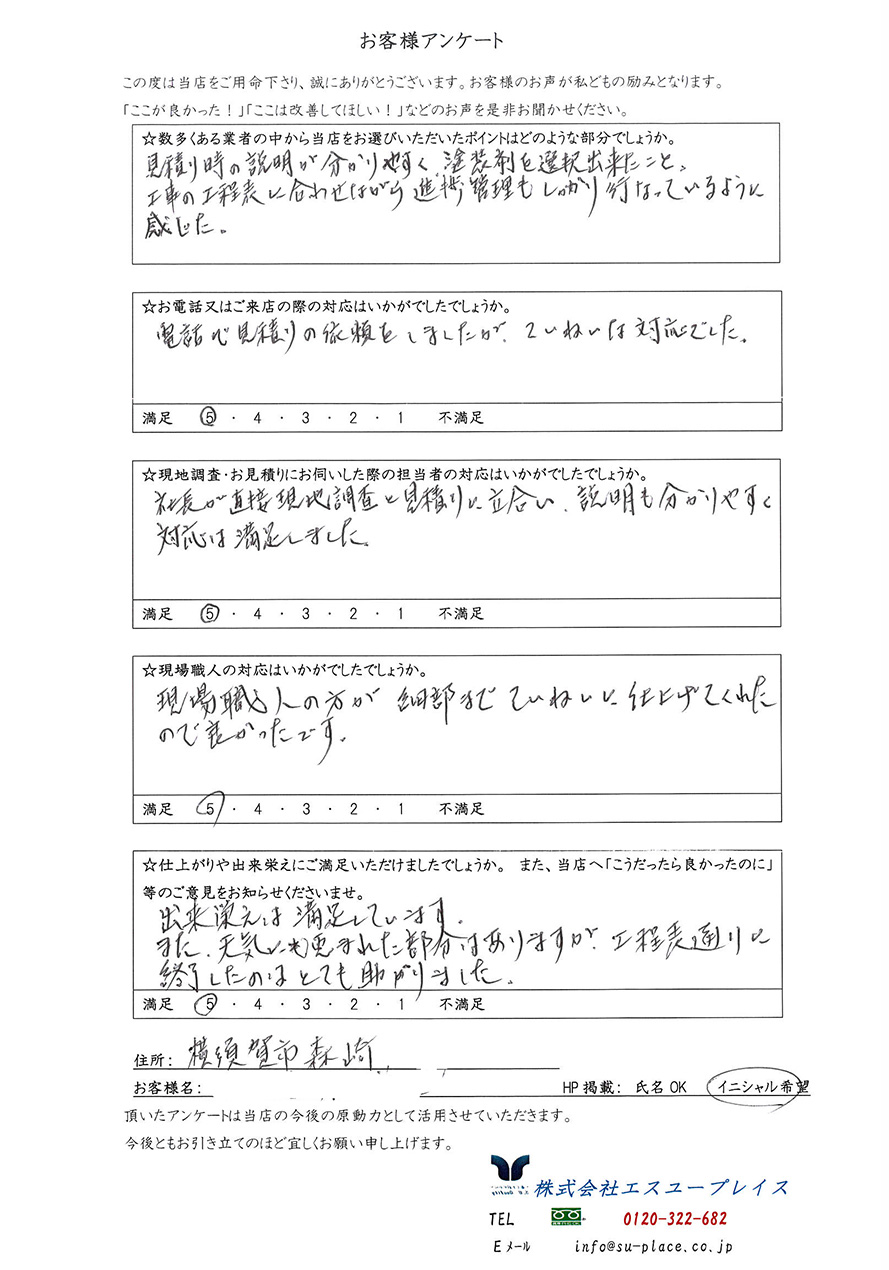 お客様アンケート
この度は当店をご用命下さり、誠にありがとうございます。お客様のお声が私どもの励みとなります。
「ここが良かった！」「ここは改善してほしい！」などのお声を是非お聞かせください。
☆数多くある業者の中から当店をお選びいただいたポイントはどのような部分でしょうか。
見積り時の説明が分かりやすく、塗装剤を選択出来たこと、
工事の工程表に合わせながら進捗管理もしっかり行なっているように
感じた。
☆お電話又はご来店の際の対応はいかがでしたでしょうか。
電話で見積りの依頼をしましたが、ていねいな対応でした。
満足 5 ・ 4 ・ 3 ・ 2 ・ 1 不満足
☆現地調査・お見積りにお伺いした際の担当者の対応はいかがでしたでしょうか。
社長が直接現地調査と見積りに立合い、説明も分かりやすく
対応は満足しました。
満足 5 ・ 4 ・ 3 ・ 2 ・ 1 不満足
☆現場職人の対応はいかがでしたでしょうか。
現場職人の方が細部までていねいに仕上げてくれた
ので良かったです。
満足 5 ・ 4 ・ 3 ・ 2 ・ 1 不満足
☆仕上がりや出来栄えにご満足いただけましたでしょうか。 また、当店へ「こうだったら良かったのに」
等のご意見をお知らせくださいませ。
出来栄えは満足しています。
また、天気にも恵まれた部分はありますが、工程表通りに
終了したのはとても助かりました。
満足 5 ・ 4 ・ 3 ・ 2 ・ 1 不満足
住所： 横須賀市森崎
お客様名： HP掲載： 氏名OK イニシャル希望
頂いたアンケートは当店の今後の原動力として活用させていただきます。
今後ともお引き立てのほど宜しくお願い申し上げます。
株式会社エスユープレイス
TEL 0120-322-682
Eメール info@su-place.co.jp